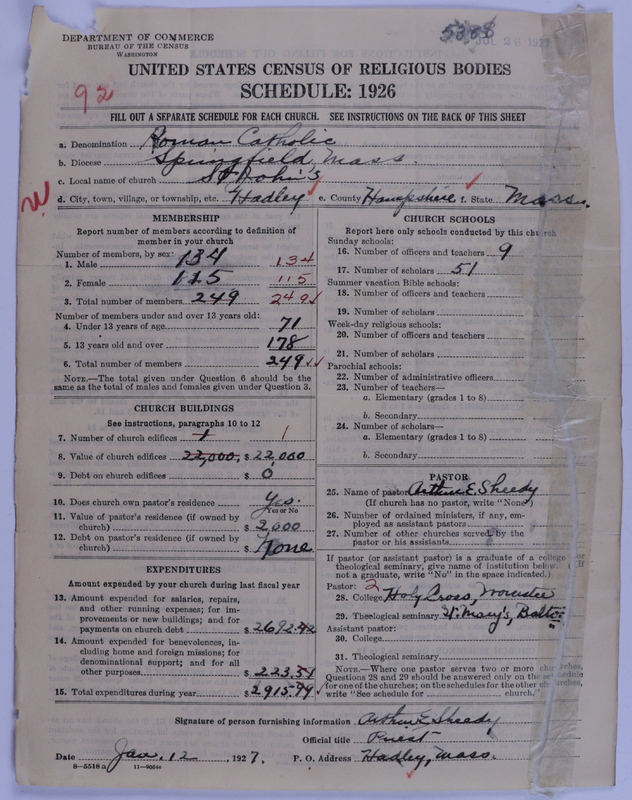 DEPARTMENT OF COMMERCE
BUREAU OF THE CENSUS
WASHINGTON
5388
JUL 26 1927
UNITED STATES CENSUS OF RELIGIOUS BODIES
SCHEDULE: 1926
92
FILL OUT A SEPARATE SCHEDULE FOR EACH CHURCH. SEE INSTRUCTIONS ON THE BACK OF THIS SHEET
a. Denomination Roman Catholic
b. Diocese Springfield, Mass.
c. Local name of church St John's
d. City, town, village, or township, etc. Hadley e. County Hampshire f. State Mass.
W
MEMBERSHIP
Report number of members according to definition of
member in your church
Number of members, by sex:
1. Male 134 134
2. Female 115 115
3. Total number of members 249 249
Number of members under and over 13 years old:
4. Under 13 years of age 71
5. 13 years old and over 178
6. Total number of members 249
NOTE.—The total given under Question 6 should be
same as the total of males and females given under Question 3.
CHURCH BUILDINGS
See instructions, paragraphs 10 to 12
7. Number of church edifices 1 1
8. Value of church edifices 22,000, $ 22,000
9. Debt on church edifices $ 0
10. Does church own pastor's residence Yes.
Yes or No
11. Value of pastor's residence (if owned by
church) $ 2,000
12. Debt on pastor's residence (if owned by
church) $ None
EXPENDITURES
Amount expended by your church during last fiscal year
13. Amount expended for salaries, repairs,
and other running expenses; for im-
provements or new buildings; and for
payments on church debt $ 2692.42
14. Amount expended for benevolences, in-
cluding home and foreign missions; for
denominational support; and for all
other purposes $ 223.54
15. Total expenditures during year $ 2915.94
CHURCH SCHOOLS
Report here only schools conducted by this church
Sunday schools:
16. Number of officers and teachers 9
17. Number of scholars 51
Summer vacation Bible schools:
18. Number of officers and teachers
19. Number of scholars
Week-day religious schools:
20. Number of officers and teachers
21. Number of scholars
Parochial schools:
22. Number of administrative officers
23. Number of teachers—
a. Elementary (grades 1 to 8)
b. Secondary
24. Number of scholars—
a. Elementary (grades 1 to 8)
b. Secondary
PASTOR
25. Name of pastor Arthur E. Sheedy
(If church has no pastor, write "None")
26. Number of ordained ministers, if any, em-
ployed as assistant pastors
27. Number of other churches served by the
pastor or his assistants
If pastor (or assistant pastor) is a graduate of a college or
theological seminary, give name of institution below. (If
not a graduate, write "No" in the space indicated.)
Pastor: 2
28. College Holy Cross, Worcester
29. Theological seminary St. Mary's, Balto.
Assistant pastor:
30. College
31. Theological seminary
NOTE.—Where one pastor serves two or more churches,
Questions 28 and 29 should be answered only on the schedule
for one of the churches; on the schedules for the other churches,
write "See schedule for church."
Signature of person furnishing information Arthur E Sheedy
Official title Priest
Date Jan. 12, 1927. P. O. Address Hadley, Mass.
8—5518a 11—9054